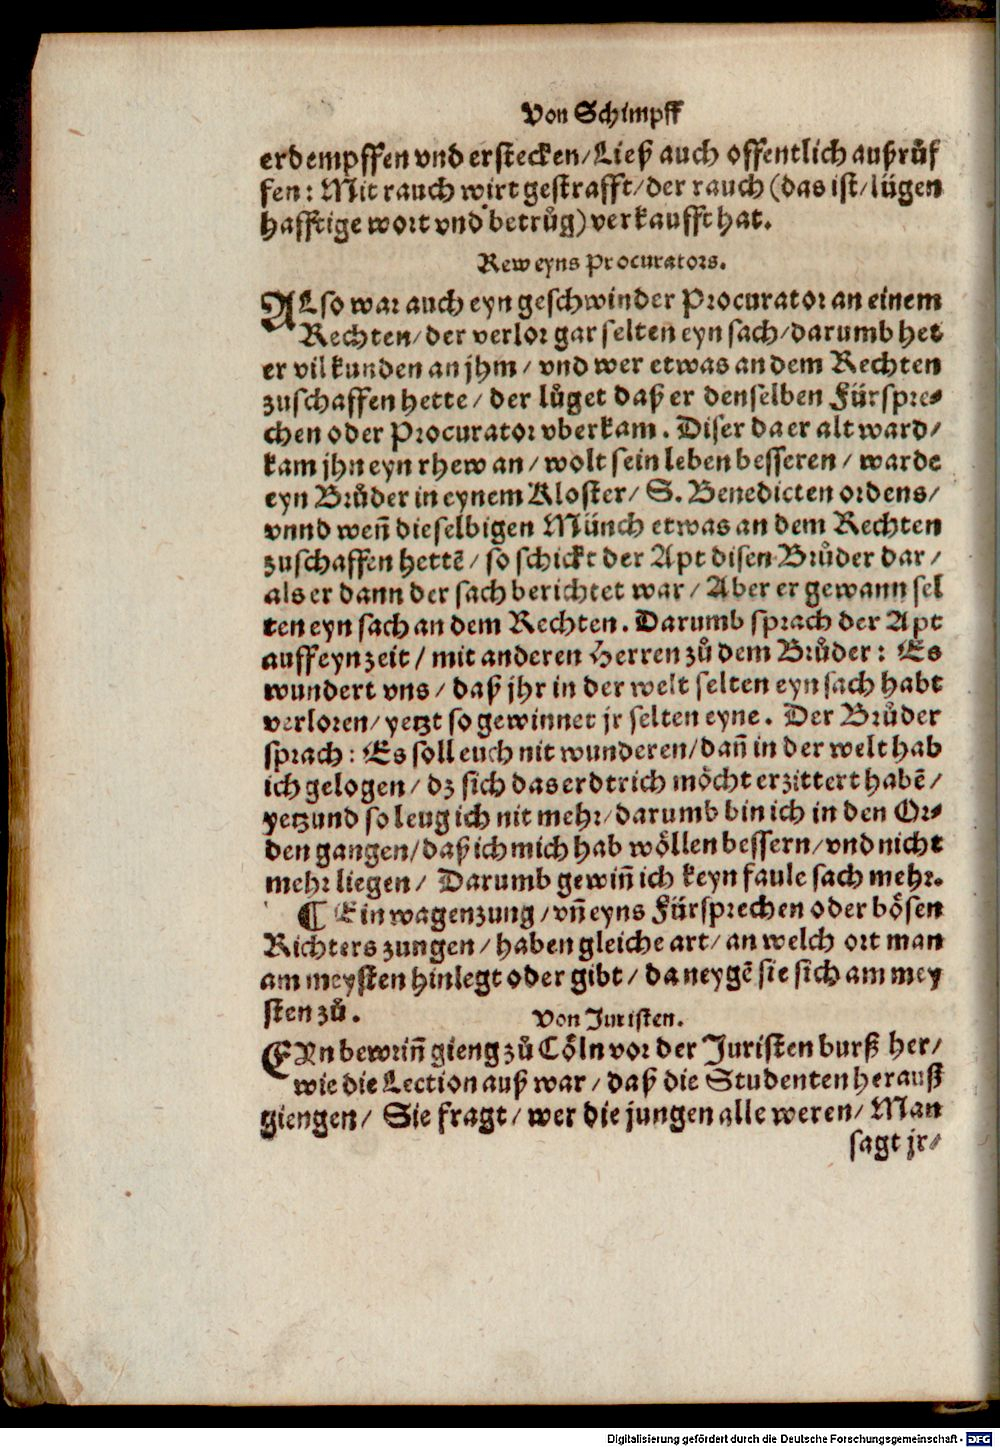 Von Schimpff
erdempffen vnd erstecken/Ließ auch offentlich außrůf
fen: Mit rauch wirt gestrafft/der rauch (das ist/lügen
hafftige wort vnd betrůg) verkaufft hat.
Rew eyns Procurators.
ALso war auch eyn geschwinder Procurator an einem
Rechten/der verlor gar selten eyn sach/darumb het
er vil kunden an jhm/ vnd wer etwas an dem Rechten
zuschaffen hette/ der lůget daß er denselben Fürspre-
chen oder Procurator vberkam. Diser da er alt ward/
kam jhn eyn rhew an/ wolt sein leben besseren/ warde
eyn Brůder in eynem Kloster/ S. Benedicten ordens/
vnnd weñ dieselbigen Münch etwas an dem Rechten
zuschaffen hettẽ/ so schickt der Apt disen Brůder dar/
als er dann der sach berichtet war/ Aber er gewann sel
ten eyn sach an dem Rechten. Darumb sprach der Apt
auff eyn zeit/ mit anderen Herren zů dem Brůder: Es
wundert vns/ daß jhr in der welt selten eyn sach habt
verloren/ yetzt so gewinnet jr selten eyne. Der Brůder
sprach: Es soll euch nit wunderen/dañ in der welt hab
ich gelogen/ dz sich das erdtrich möcht erzittert habẽ/
yetzund so leug ich nit mehr/darumb bin ich in den Or-
den gangen/daß ich mich hab wöllen bessern/vnd nicht
mehr liegen/ Darumb gewiñ ich keyn faule sach mehr.
¶ Ein wagenzung/vñ eyns Fürsprechen oder bösen
Richters zungen/haben gleiche art/an welch ort man
am meysten hinlegt oder gibt/ da neygẽ sie sich am mey
sten zů.
Von Juristen.
EYn bewriñ gieng zů Cöln vor der Juristen burß her/
wie die Lection auß war/ daß die Studenten herauß
giengen/ Sie fragt/ wer die jungen alle weren/ Man
sagt jr/
Digitalisierung gefördert durch die Deutsche Forschungsgemeinschaft - DFG